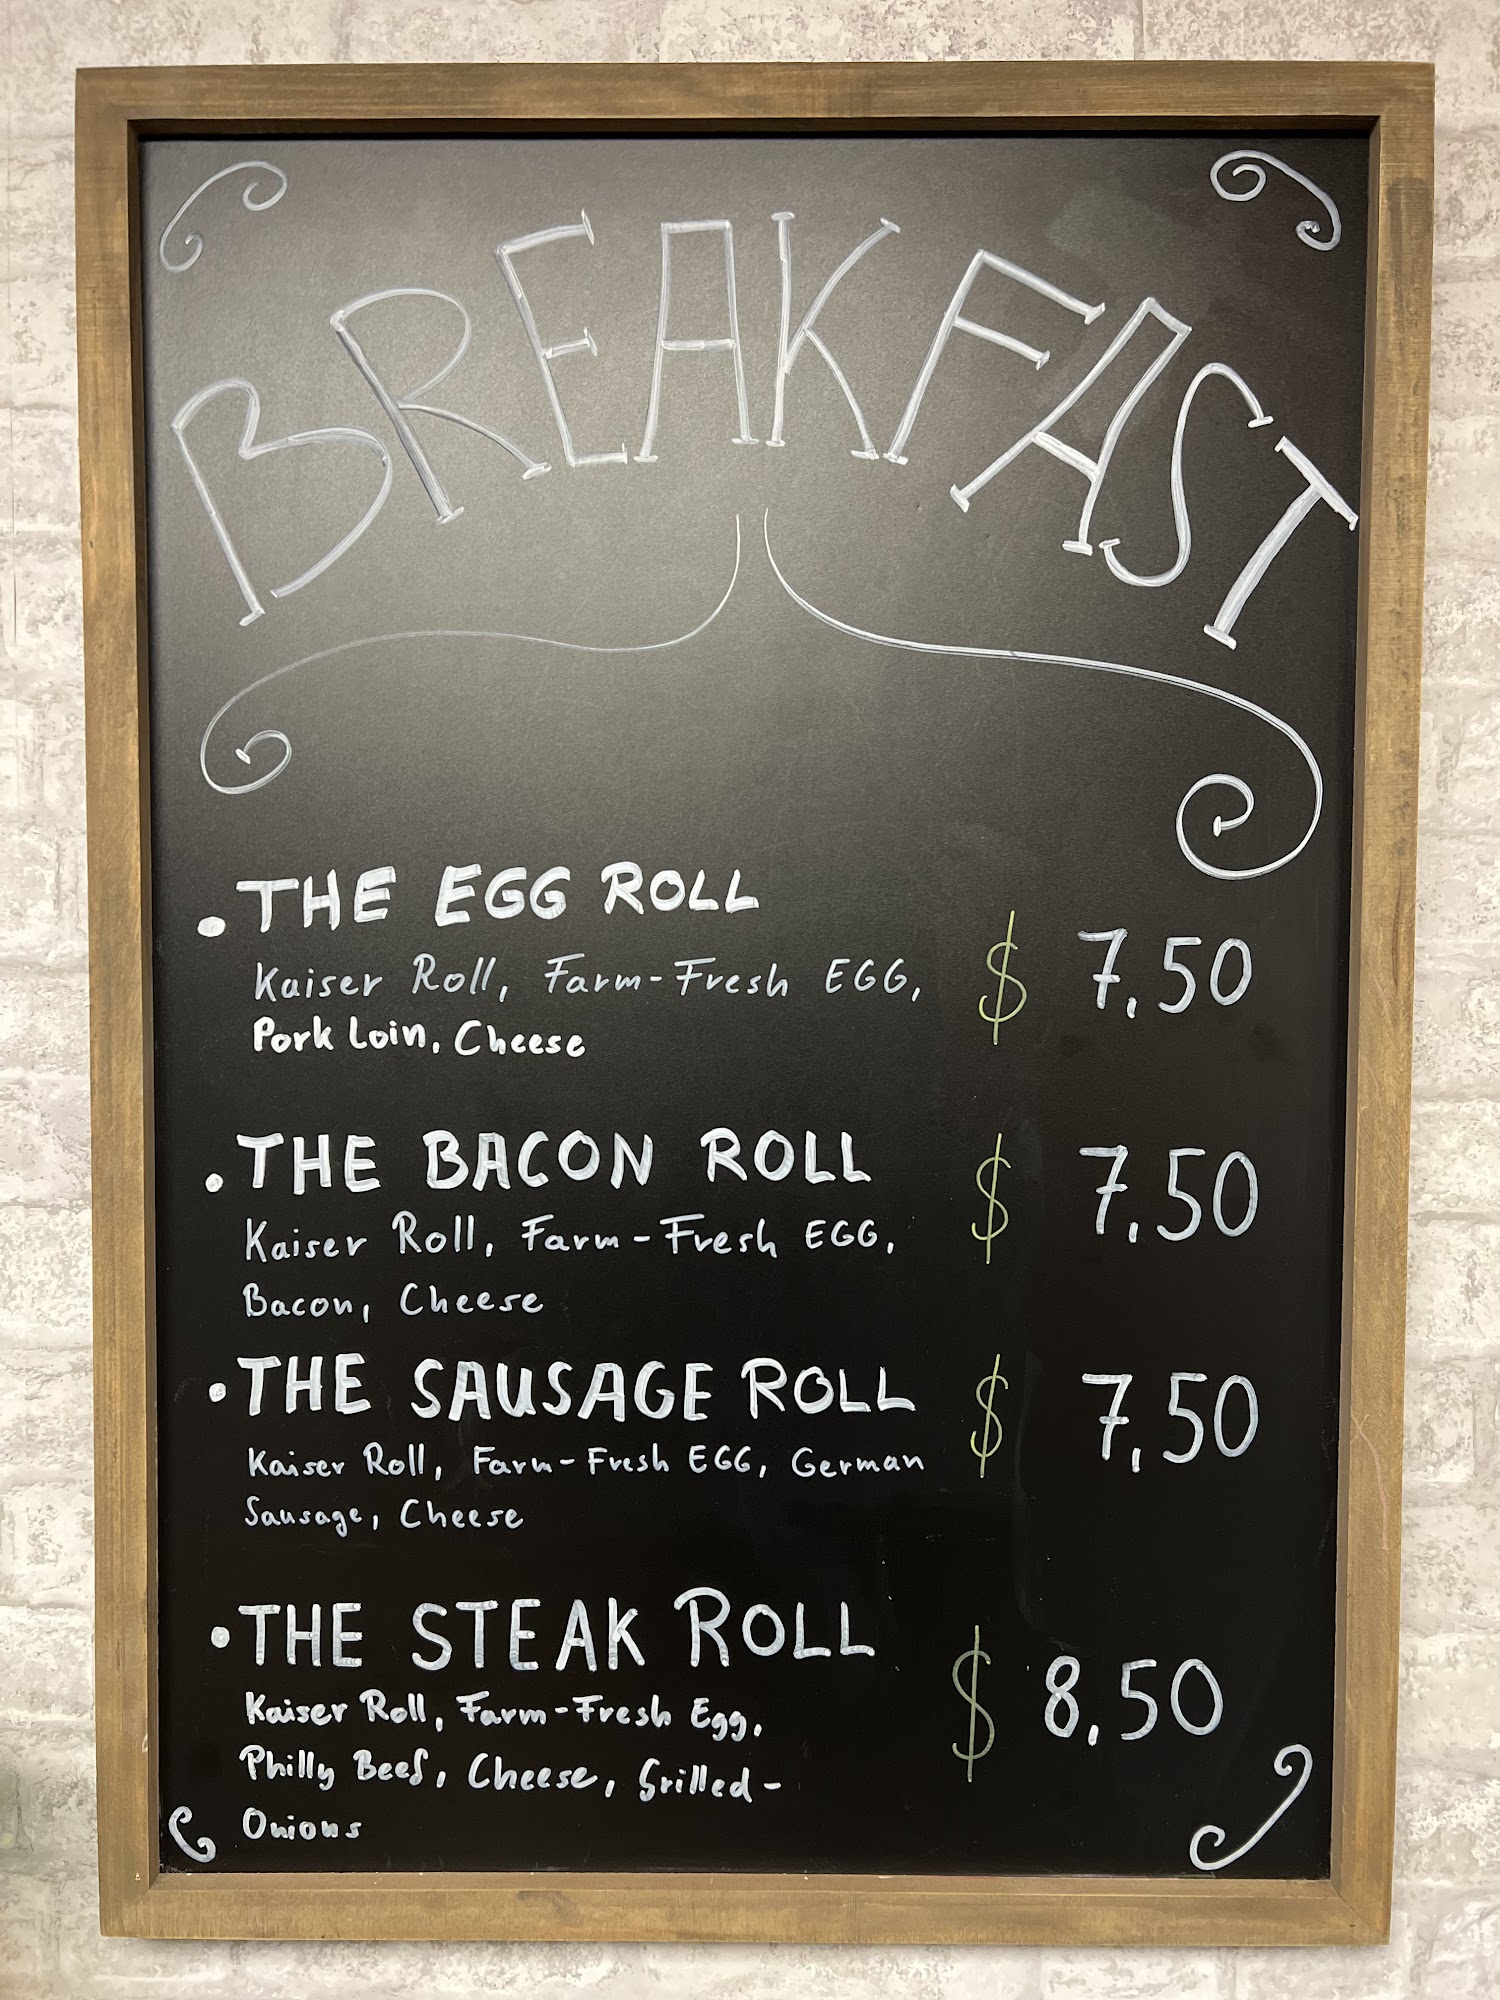 BREAKFAST
• THE EGG ROLL
Kaiser Roll, Farm-Fresh EGG,
$ 7,50
Pork Loin, Cheese
• THE BACON ROLL
$ 7,50
Kaiser Roll, Farm-Fresh EGG,
Bacon, Cheese
• THE SAUSAGE ROLL
$ 7,50
Kaiser Roll, Farm-Fresh EGG, German
Sausage, Cheese
• THE STEAK ROLL
$ 8,50
Kaiser Roll, Farm-Fresh Egg,
Philly Beef, Cheese, Grilled-
Onions